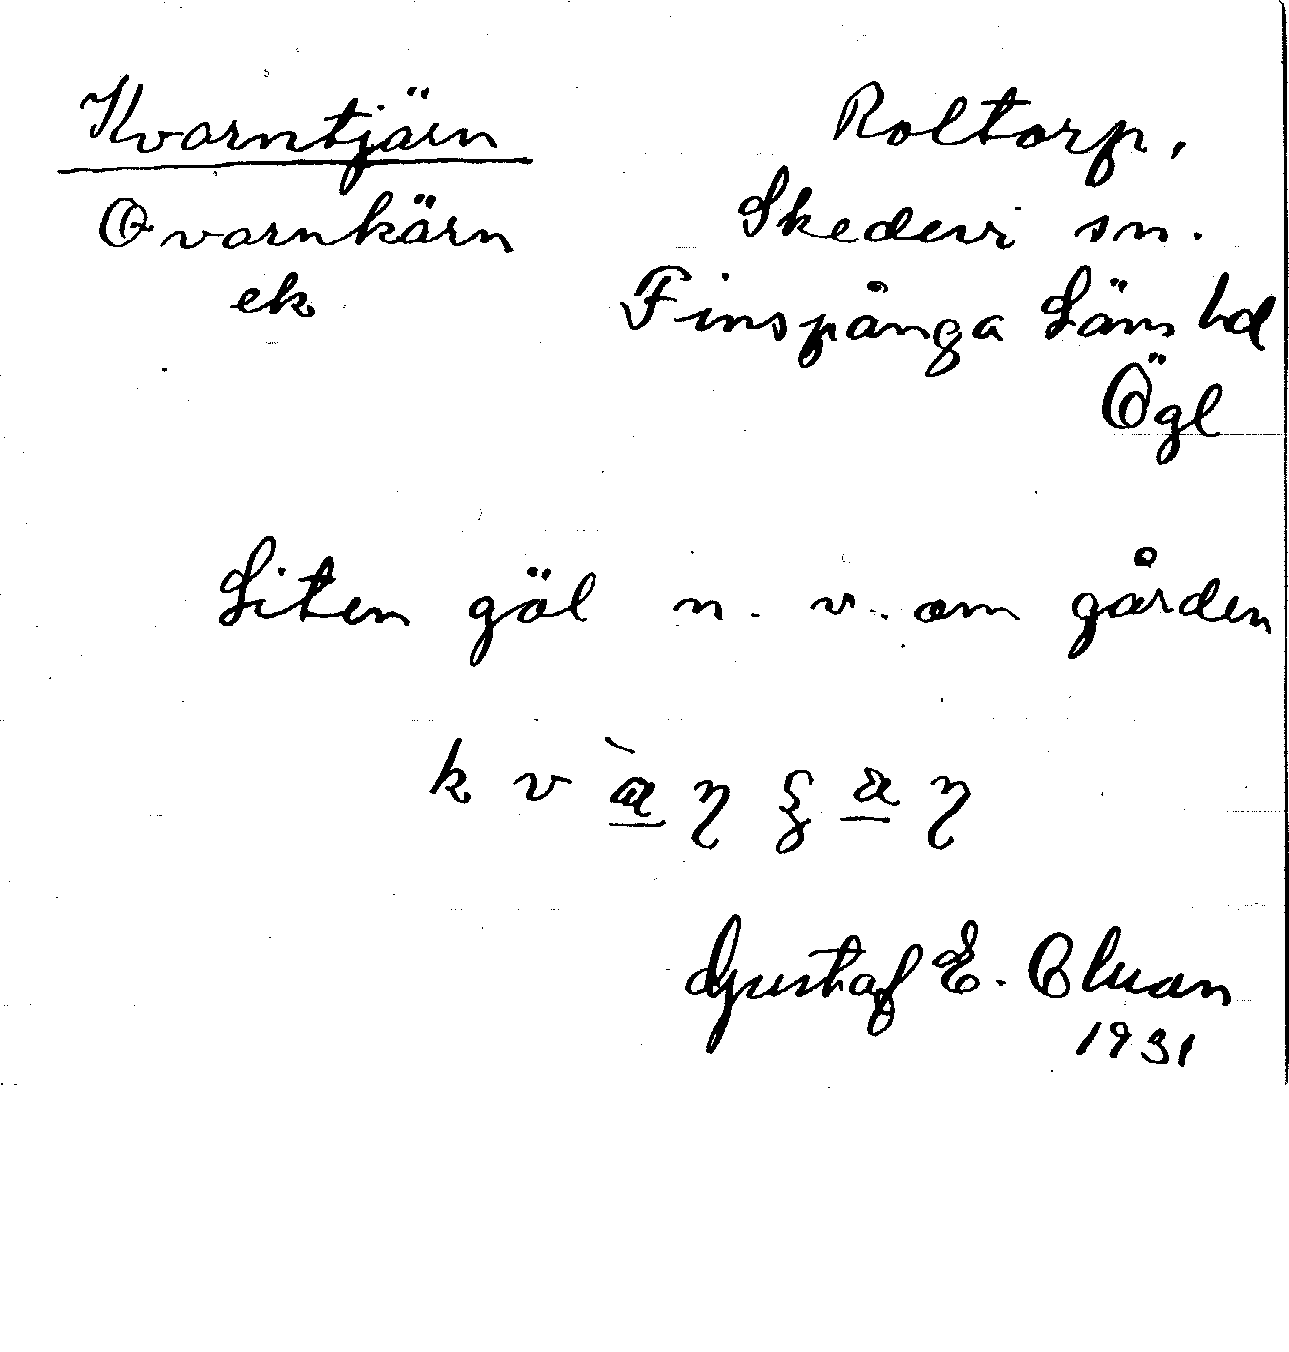 Kvarntjärn
Qvarnkärn
ek
Roltorp,
Skedevi sn.
Finspånga Läns hd
Ögl
Liten göl n. v. om gården
Gustaf E. Cluan
1931